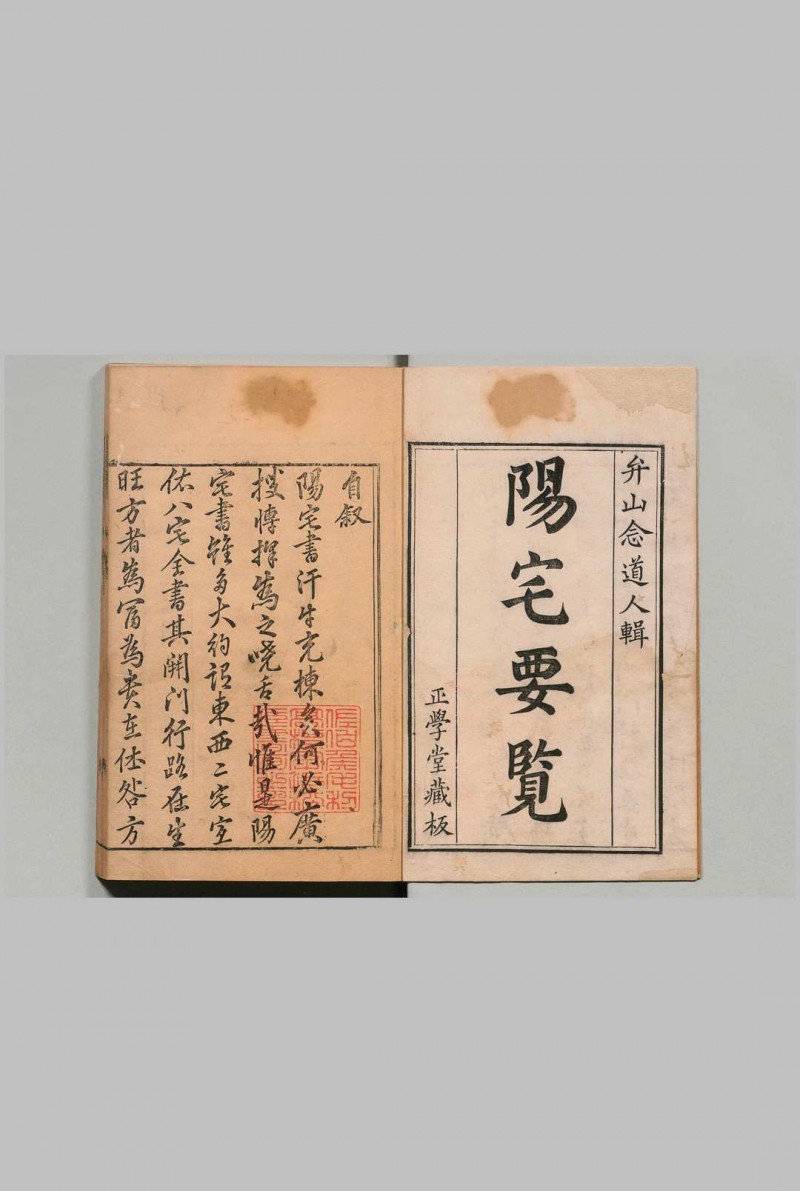 弁山念道人輯
陽宅要覽
正學堂藏板
自叙
陽宅書汗牛充棟矣何必廣
搜博擇為之嘵舌哉惟是陽
宅書雖多大約論東西二宅室
依八宅全書其開门行路在生
旺方者為富為貴在休咎方